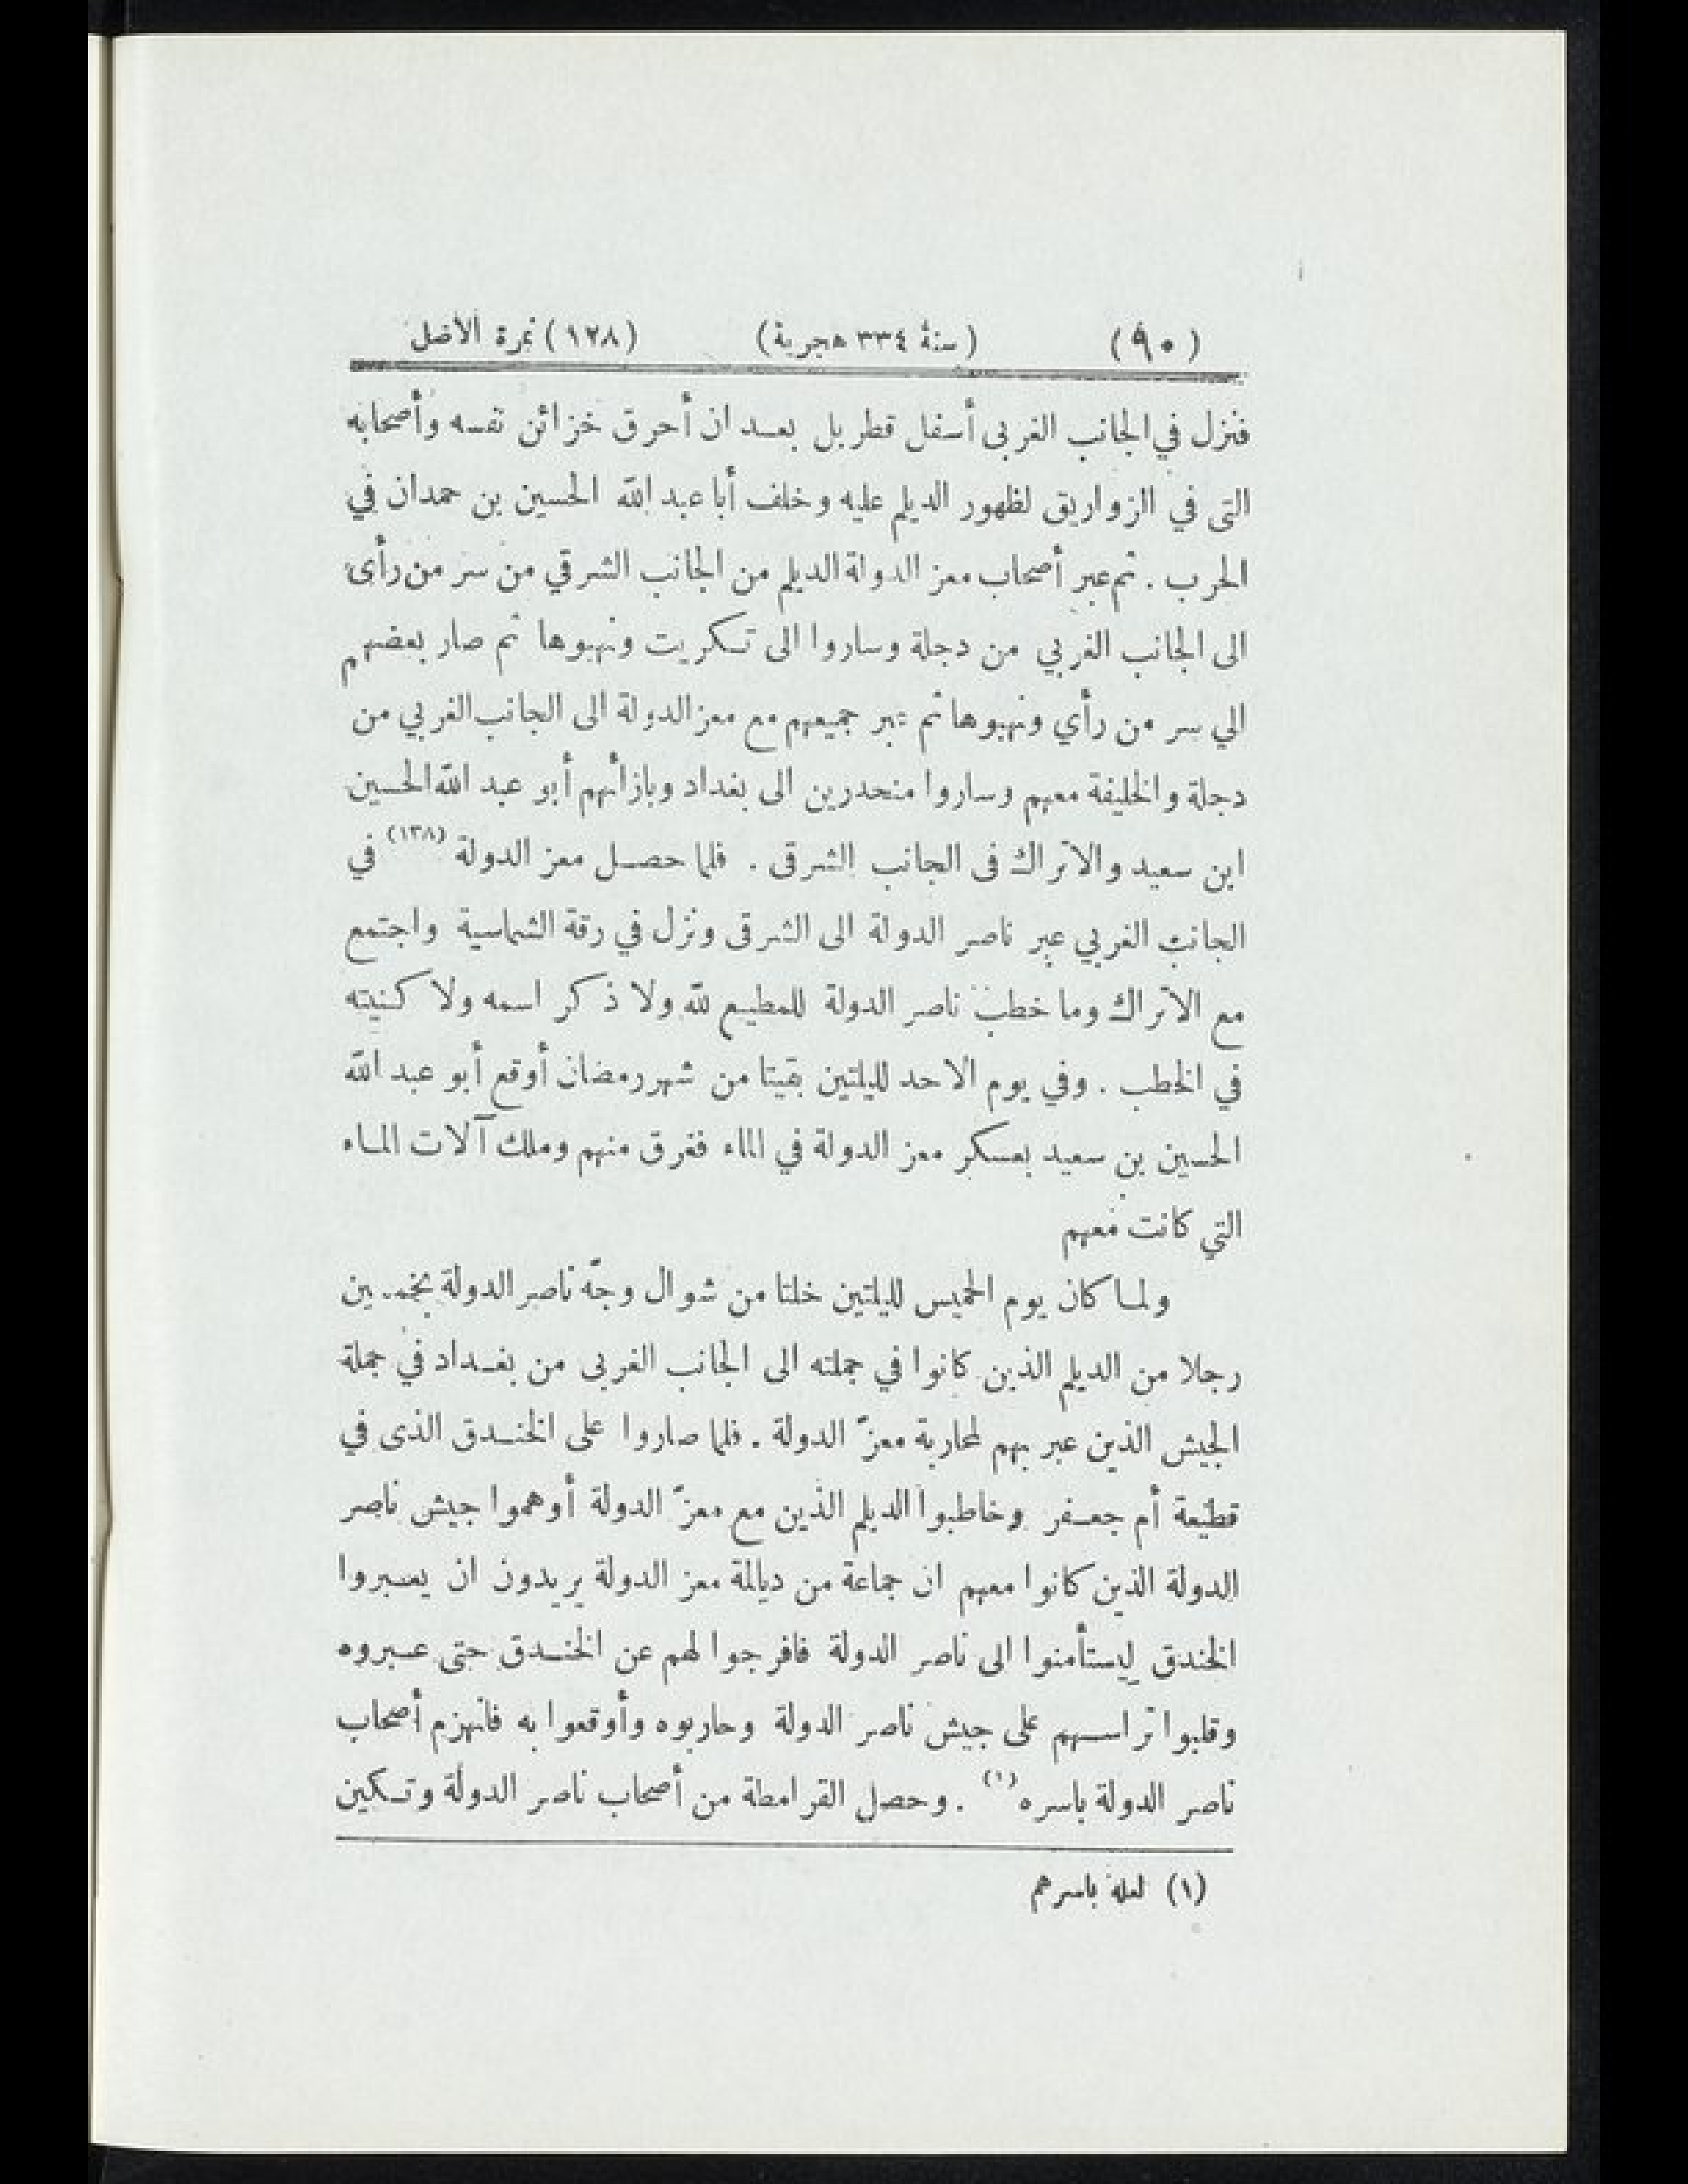 (٩٠) (سنة ٣٣٤ هجرية) (١٢٨) نمرة الأصل
فنزل في الجانب الغربى أسفل قطربل بعد ان أحرق خزائن نفسه وأصحابه
التى في الزواريق لظهور الديلم عليه وخلف أبا عبد الله الحسين بن حمدان في
الحرب . ثم عبر أصحاب معز الدولة الديلم من الجانب الشرقي من سر من رأى
الى الجانب الغربي من دجلة وساروا الى تكريت ونهبوها ثم صار بعضهم
الي سر من رأي ونهبوها ثم عبر جميعهم مع معز الدولة الى الجانب الغربي من
دجلة والخليفة معهم وساروا منحدرين الى بغداد وبازائهم أبو عبد الله الحسين
ابن سعيد والاتراك فى الجانب الشرقى . فلما حصل معز الدولة (١٣٨) في
الجانب الغربي عبر ناصر الدولة الى الشرقى ونزل في رقة الشماسية واجتمع
مع الاتراك وما خطب ناصر الدولة للمطيع لله ولا ذكر اسمه ولا كنيته
في الخطب . وفي يوم الاحد لليلتين بقيتا من شهر رمضان أوقع أبو عبد الله
الحسين بن سعيد بعسكر معز الدولة في الماء فغرق منهم وملك آلات الماء
التي كانت معهم
ولما كان يوم الخميس لليلتين خلتا من شوال وجّه ناصر الدولة بخمسين
رجلا من الديلم الذين كانوا في جملته الى الجانب الغربى من بغداد في جملة
الجيش الذين عبر بهم لمحاربة معزّ الدولة . فلما صاروا على الخندق الذى في
قطيعة أم جعفر وخاطبوا الديلم الذين مع معزّ الدولة أوهموا جيش ناصر
الدولة الذين كانوا معهم ان جماعة من ديالمة معز الدولة يريدون ان يعبروا
الخندق ليستأمنوا الى ناصر الدولة فافرجوا لهم عن الخندق حتى عبروه
وقلبوا تراسهم على جيش ناصر الدولة وحاربوه وأوقعوا به فانهزم أصحاب
ناصر الدولة باسره (١) . وحصل القرامطة من أصحاب ناصر الدولة وتسكين
(١) لعله باسرهم